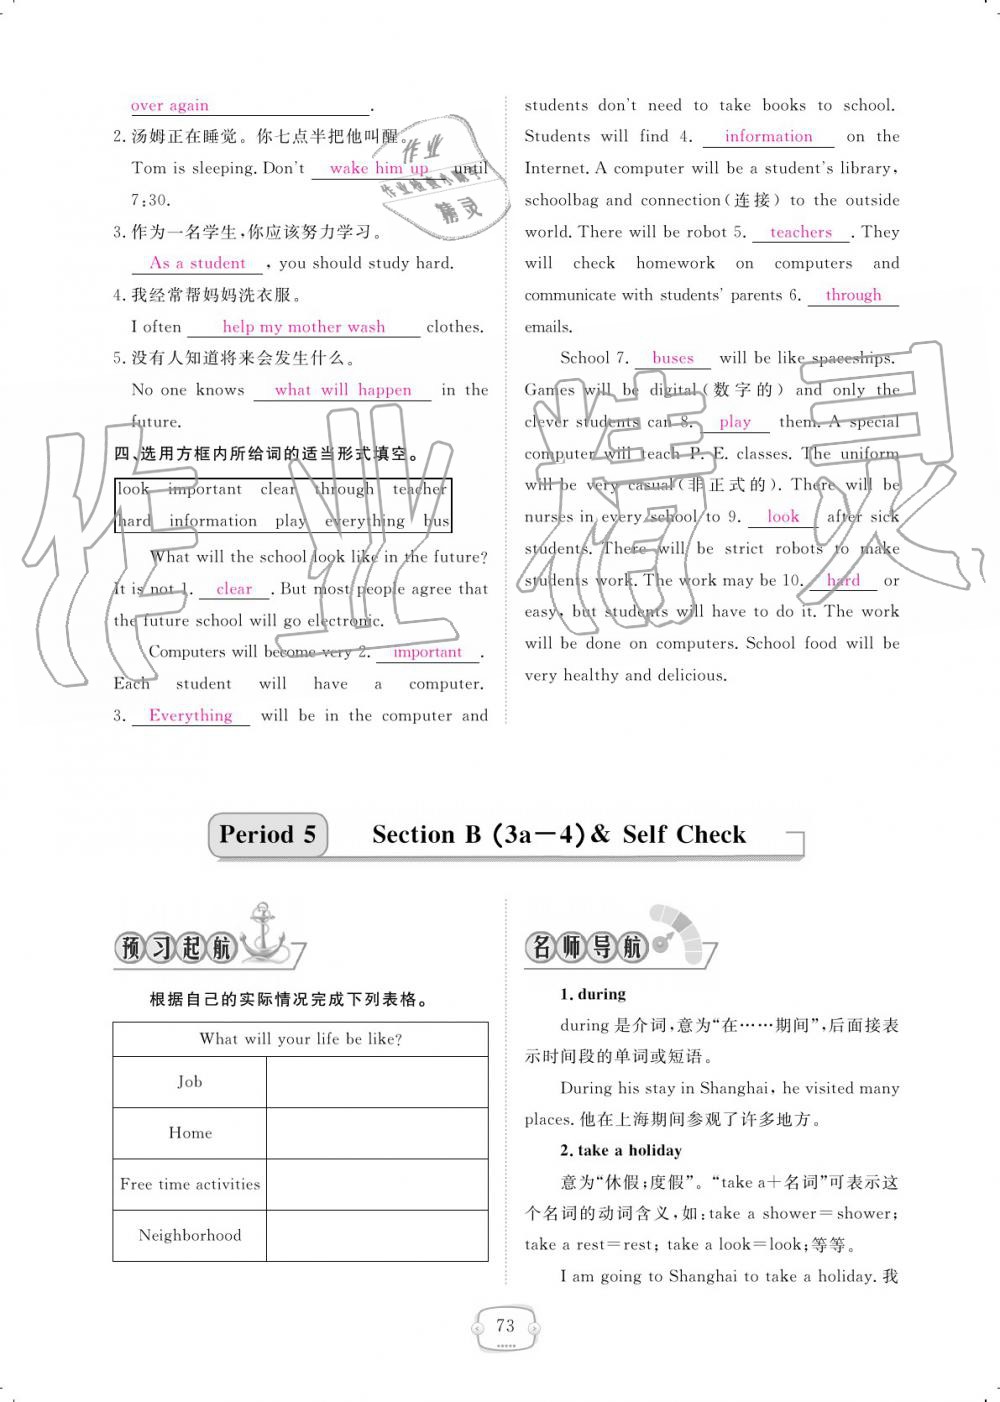 over again.
2.汤姆正在睡觉。你七点半把他叫醒。
Tom is sleeping. Don't wake him up until
7:30.
3.作为一名学生,你应该努力学习。
As a student, you should study hard.
4.我经常帮妈妈洗衣服。
I often help my mother wash clothes.
5.没有人知道将来会发生什么。
No one knows what will happen in the
future.
四、选用方框内所给词的适当形式填空。
look important clear through teacher
hard information play everything bus
What will the school look like in the future?
It is not 1. clear. But most people agree that
the future school will go electronic.
Computers will become very 2. important.
Each student will have a computer.
3. Everything will be in the computer and
students don't need to take books to school.
Students will find 4. information on the
Internet. A computer will be a student's library,
schoolbag and connection(连接) to the outside
world. There will be robot 5. teachers. They
will check homework on computers and
communicate with students' parents 6. through
emails.
School 7. buses will be like spaceships.
Games will be digital(数字的) and only the
clever students can 8. play them. A special
computer will teach P. E. classes. The uniform
will be very casual(非正式的). There will be
nurses in every school to 9. look after sick
students. There will be strict robots to make
students work. The work may be 10. hard or
easy, but students will have to do it. The work
will be done on computers. School food will be
very healthy and delicious.
作业
作业检查小助手
精灵
作业精灵
Period 5 Section B (3a－4)& Self Check
预习起航
根据自己的实际情况完成下列表格。
What will your life be like?
Job
Home
Free time activities
Neighborhood
名师导航
1. during
during 是介词,意为“在……期间”,后面接表
示时间段的单词或短语。
During his stay in Shanghai, he visited many
places. 他在上海期间参观了许多地方。
2. take a holiday
意为“休假;度假”。“take a＋名词”可表示这
个名词的动词含义,如:take a shower＝shower;
take a rest＝rest; take a look＝look;等等。
I am going to Shanghai to take a holiday. 我
73